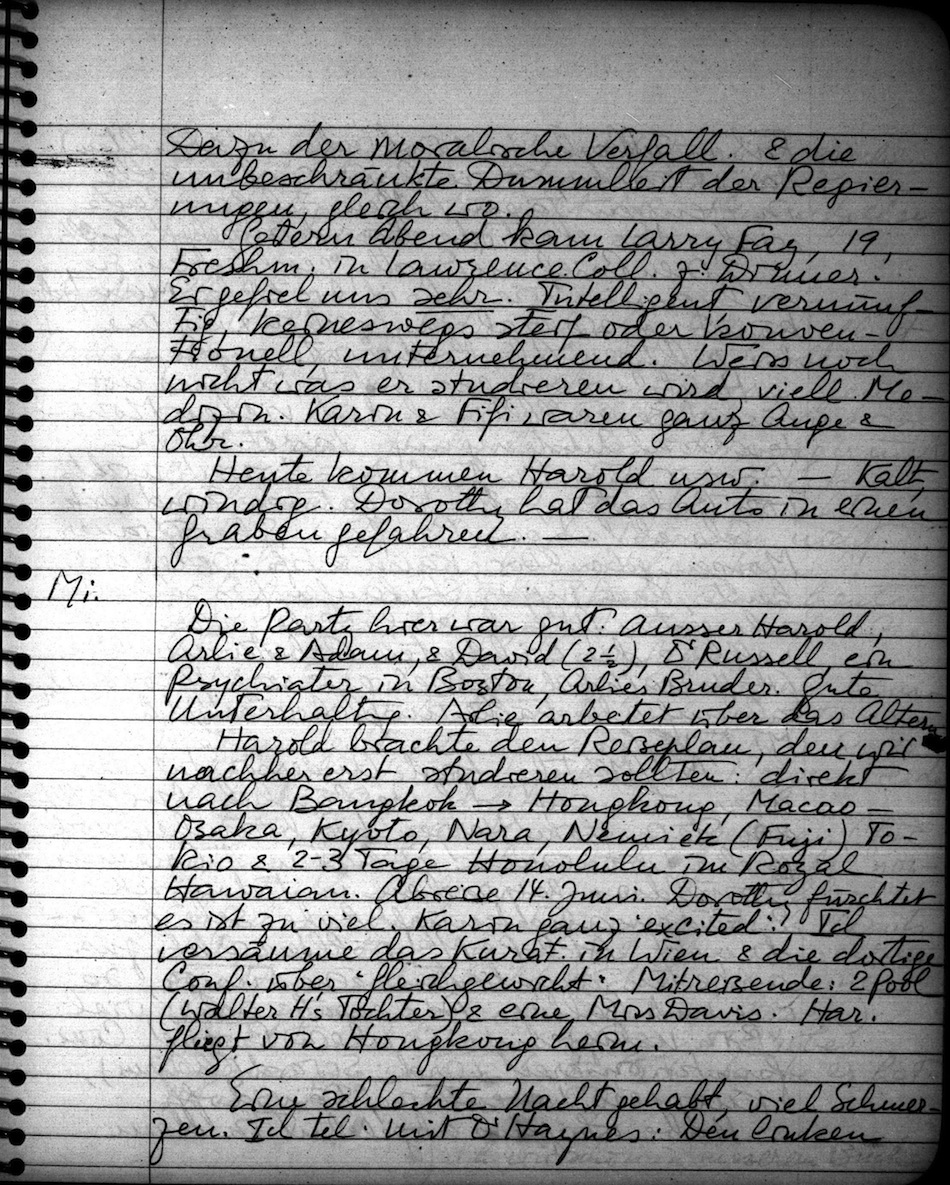 Dazu der moralische Verfall. & die
unbeschränkte Dummheit der Regier-
ungen, gleich wo.
Gestern Abend kam Larry Fay, 19,
Freshm. in Lawrence Coll. z. Dinner.
Er gefiel uns sehr. Intelligent vernünf-
tig, keineswegs steif oder konven-
tionell, unternehmend. Weiss noch
nicht was er studieren wird viell. Me-
dizin. Karin & Fifi waren ganz Auge &
Ohr.
Heute kommen Harold usw. — Kalt,
windig. Dorothy hat das Auto in einen
Graben gefahren. —
Mi.
Die Party hier war gut. Ausser Harold,
Arlie & Adam, & David (2½), Dr Russell, ein
Psychiater in Boston, Arlies Bruder. Gute
Unterhaltg. Arlie arbeitet über das Alter.
Harold brachte den Reiseplan, den wir
nachher erst studieren sollten: direkt
nach Bangkok → Hongkong, Macao –
Osaka, Kyoto, Nara, (Fuji) To-
kio & 2-3 Tage Honolulu im Royal
Hawaian. Abreise 14. Juni. Dorothy fürchtet
es ist zu viel. Karin ganz excited! Ich
versäume das Kurat. in Wien & die dortige
Conf. über "Gleichgewicht". Mitreisende: 2 Pool
(Walter H's Töchter) & eine Mrs Davis. Har.
fliegt von Hongkong heim.
Eine schlechte Nacht gehabt, viel Schmer-
zen. Ich tel. mit Dr Haynes: Den linken